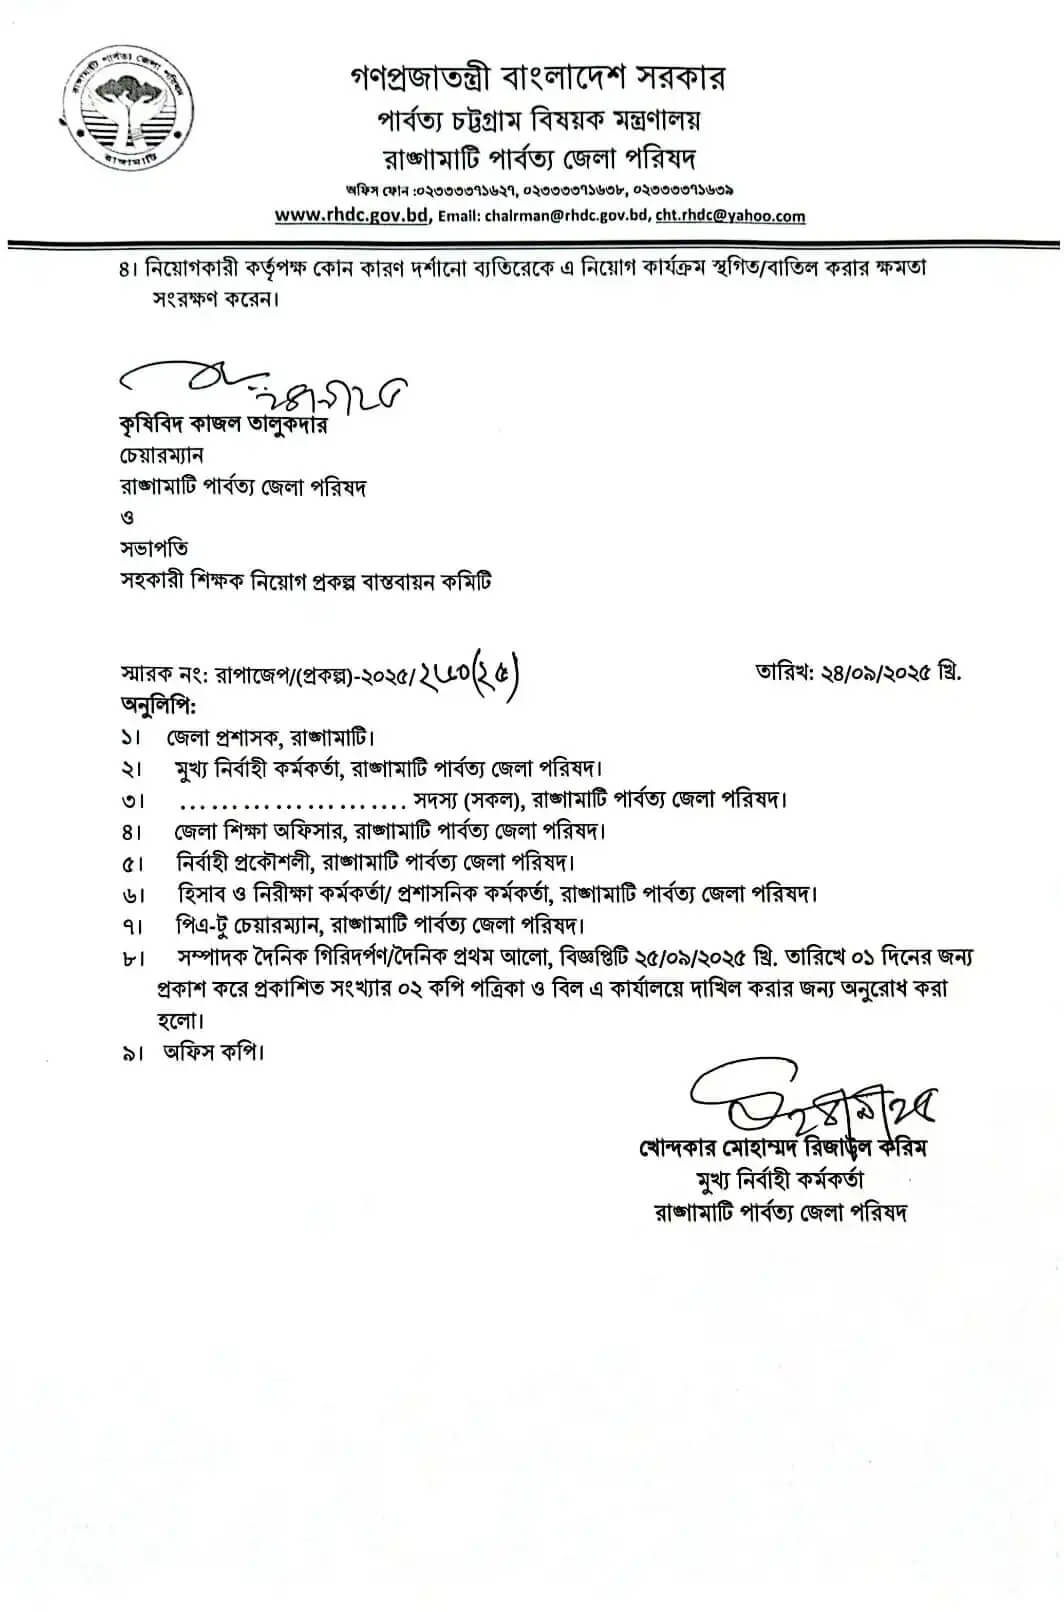 রাঙ্গামাটি পার্বত্য জেলা পরিষদ
রাঙ্গামাটি
গণপ্রজাতন্ত্রী বাংলাদেশ সরকার
পার্বত্য চট্টগ্রাম বিষয়ক মন্ত্রণালয়
রাঙ্গামাটি পার্বত্য জেলা পরিষদ
অফিস ফোন :০২৩৩৩৩৭১৬২৭, ০২৩৩৩৩৭১৬৩৮, ০২৩৩৩৩৭১৬৩৯
www.rhdc.gov.bd, Email: chairman@rhdc.gov.bd, cht.rhdc@yahoo.com
৪। নিয়োগকারী কর্তৃপক্ষ কোন কারণ দর্শানো ব্যতিরেকে এ নিয়োগ কার্যক্রম স্থগিত/বাতিল করার ক্ষমতা
সংরক্ষণ করেন।
২৪/৯/২৫
কৃষিবিদ কাজল তালুকদার
চেয়ারম্যান
রাঙ্গামাটি পার্বত্য জেলা পরিষদ
ও
সভাপতি
সহকারী শিক্ষক নিয়োগ প্রকল্প বাস্তবায়ন কমিটি
স্মারক নং: রাপাজেপ/(প্রকল্প)-২০২৫/ তারিখ: ২৪/০৯/২০২৫ খ্রি.
অনুলিপি:
১। জেলা প্রশাসক, রাঙ্গামাটি।
২। মুখ্য নির্বাহী কর্মকর্তা, রাঙ্গামাটি পার্বত্য জেলা পরিষদ।
৩। ...................... সদস্য (সকল), রাঙ্গামাটি পার্বত্য জেলা পরিষদ।
৪। জেলা শিক্ষা অফিসার, রাঙ্গামাটি পার্বত্য জেলা পরিষদ।
৫। নির্বাহী প্রকৌশলী, রাঙ্গামাটি পার্বত্য জেলা পরিষদ।
৬। হিসাব ও নিরীক্ষা কর্মকর্তা/ প্রশাসনিক কর্মকর্তা, রাঙ্গামাটি পার্বত্য জেলা পরিষদ।
৭। পিএ-টু চেয়ারম্যান, রাঙ্গামাটি পার্বত্য জেলা পরিষদ।
৮। সম্পাদক দৈনিক গিরিদর্পণ/দৈনিক প্রথম আলো, বিজ্ঞপ্তিটি ২৫/০৯/২০২৫ খ্রি. তারিখে ০১ দিনের জন্য
প্রকাশ করে প্রকাশিত সংখ্যার ০২ কপি পত্রিকা ও বিল এ কার্যালয়ে দাখিল করার জন্য অনুরোধ করা
হলো।
৯। অফিস কপি।
২৪/৯/২৫
খোন্দকার মোহাম্মদ রিজাউল করিম
মুখ্য নির্বাহী কর্মকর্তা
রাঙ্গামাটি পার্বত্য জেলা পরিষদ